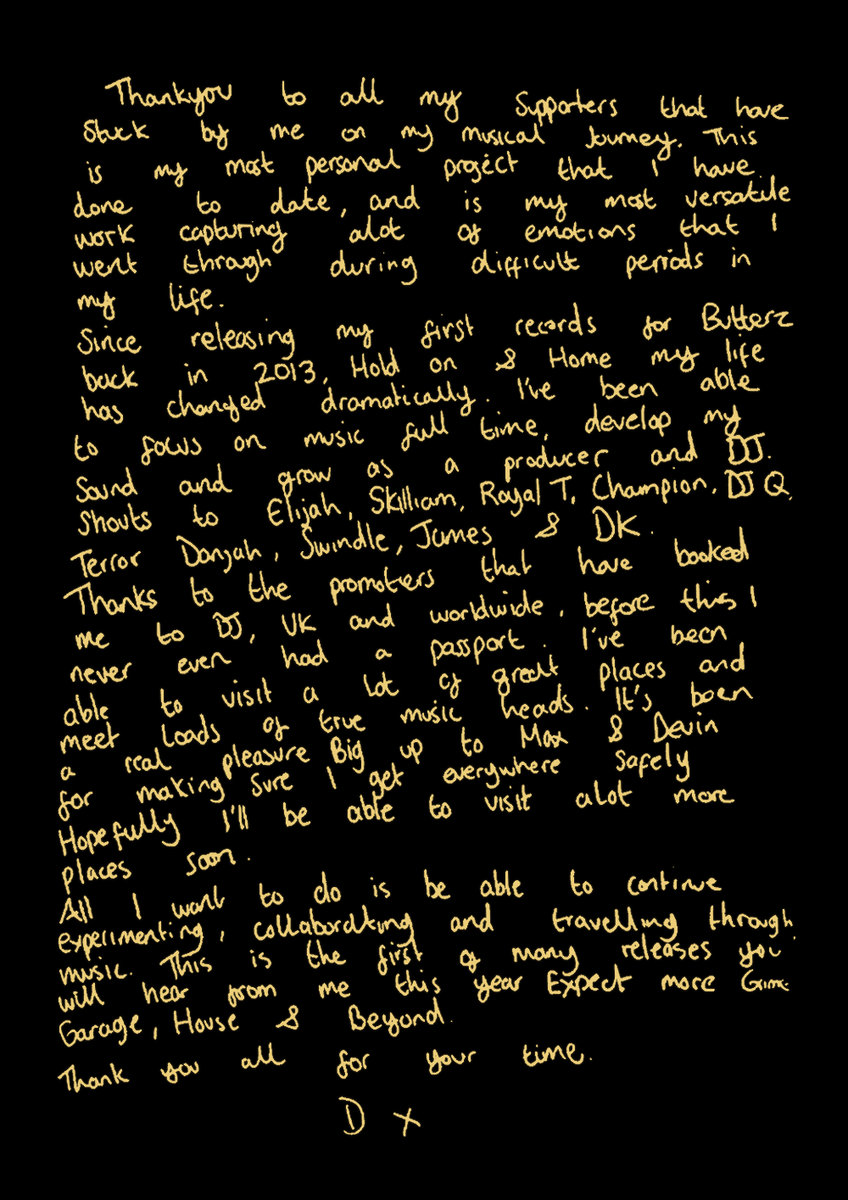 Thankyou to all my Supporters that have
Stuck by me on my musical Journey. This
is my most personal project that I have
done to date, and is my most versatile
work capturing alot of emotions that I
went through during difficult periods in
my life.
Since releasing my first records for Butterz
back in 2013, Hold on & Home my life
has changed dramatically. I've been able
to focus on music full time, develop my
Sound and grow as a producer and DJ.
Shouts to Elijah, Skilliam, Royal T, Champion, DJ Q,
Terror Danjah, Swindle, James & DK.
Thanks to the promoters that have booked
me to DJ, UK and worldwide, before this I
never even had a passport. I've been
able to visit a lot of great places and
meet loads of true music heads. It's been
a real pleasure Big up to Max & Devin
for making sure I get everywhere safely
Hopefully I'll be able to visit alot more
places soon.
All I want to do is be able to continue
experimenting, collaborating and travelling through
music. This is the first of many releases you
will hear from me this year Expect more Grime
Garage, House & Beyond.
Thank you all for your time.
D x